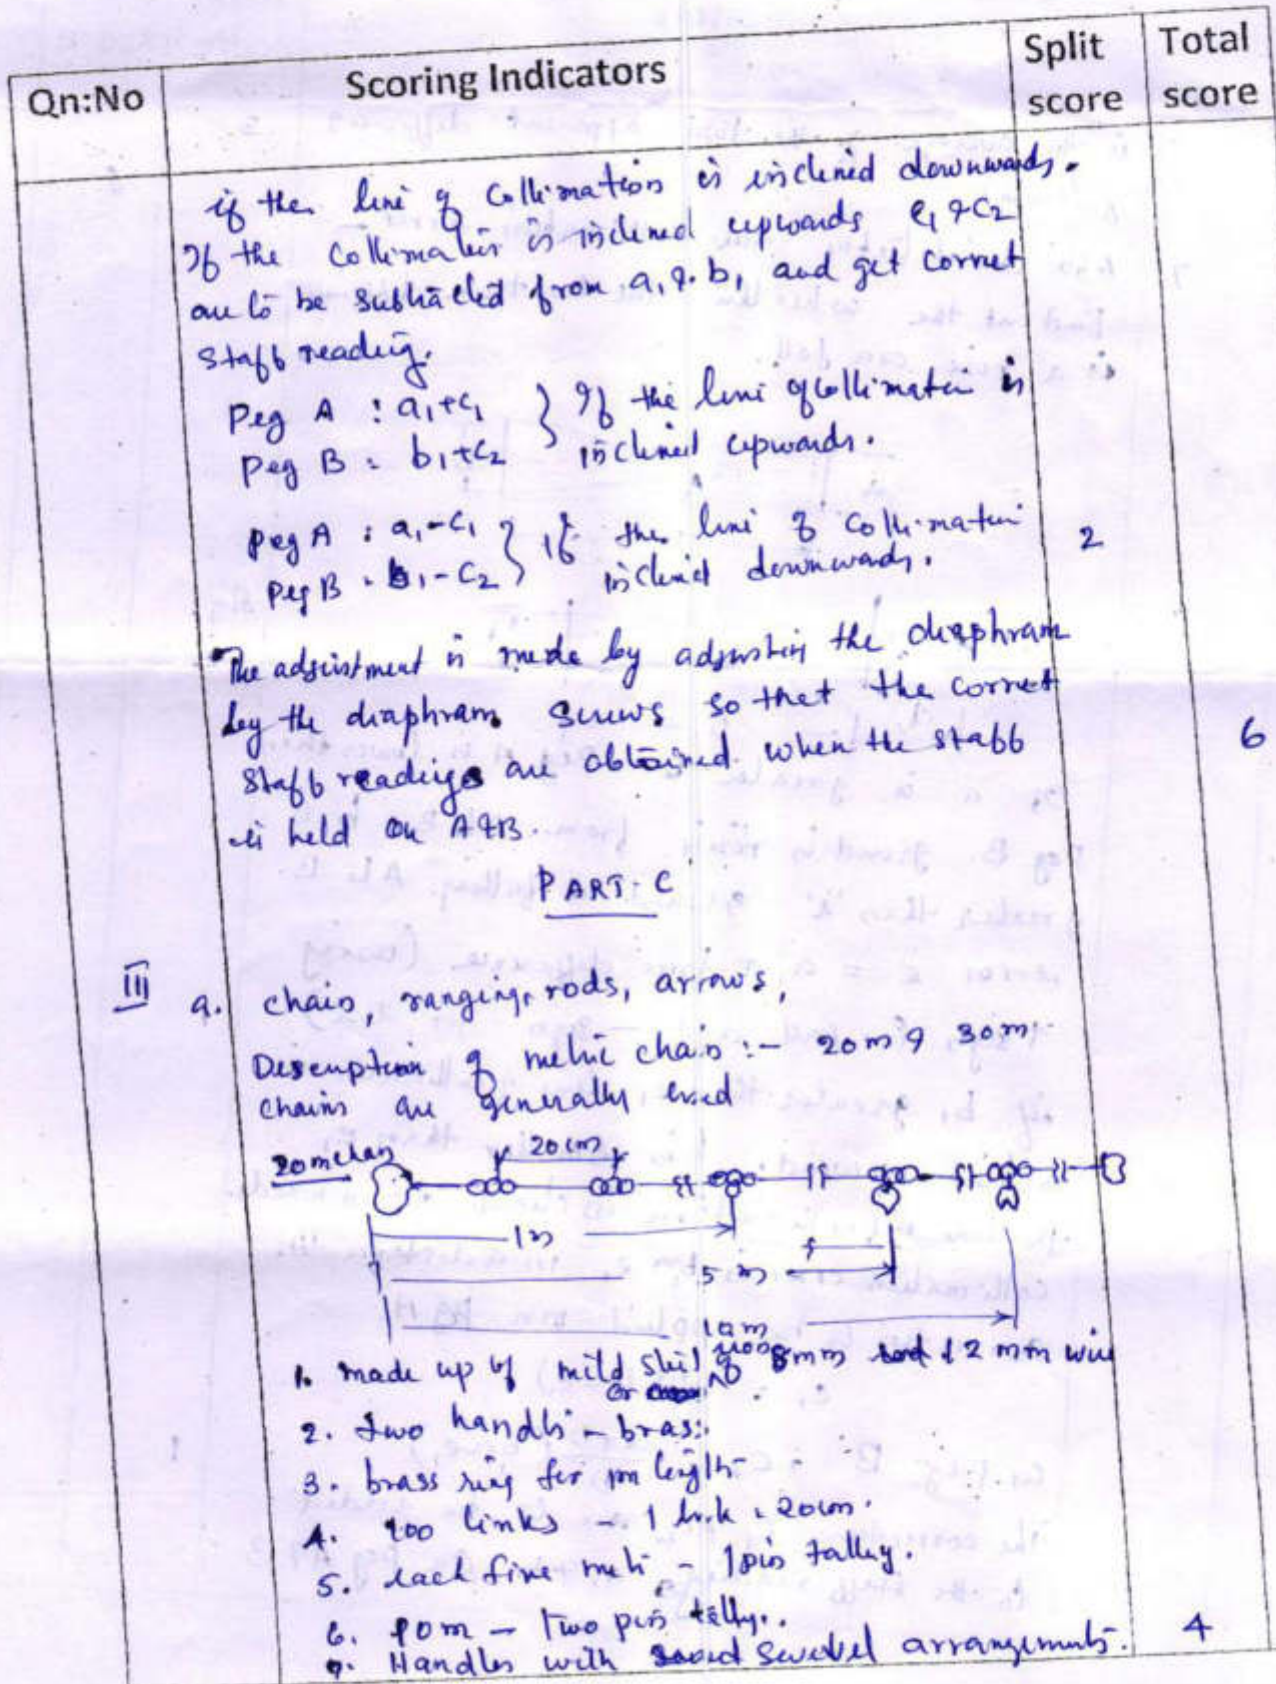 Qn:No Scoring Indicators Split score Total score
if the line of Collimation is inclined downwards.
If the Collimation is inclined upwards C1 & C2
are to be subtracted from a1 & b1 and get correct
staff reading.
Peg A : a1+c1 } If the line of collimation is
Peg B : b1+c2 inclined upwards.
peg A : a1-c1 } if the line of collimation
peg B : b1-c2 inclined downwards. 2
The adjustment is made by adjusting the diaphram
by the diaphram screws so that the correct
staff readings are obtained when the staff 6
is held on A & B.
PART-C
III a. chain, ranging rods, arrows,
Description of metric chain :- 20m & 30m
chains are generally used
20m chain 20cm
1m
5m
10m
1. made up of mild steel of 8mm 2 mm wire
2. two handls - brass
3. brass ring for length
4. 100 links - 1 link = 20cm.
5. each five metr - 1 pin talley.
6. 10m - Two pin tally.
7. Handles with swevel arrangements. 4